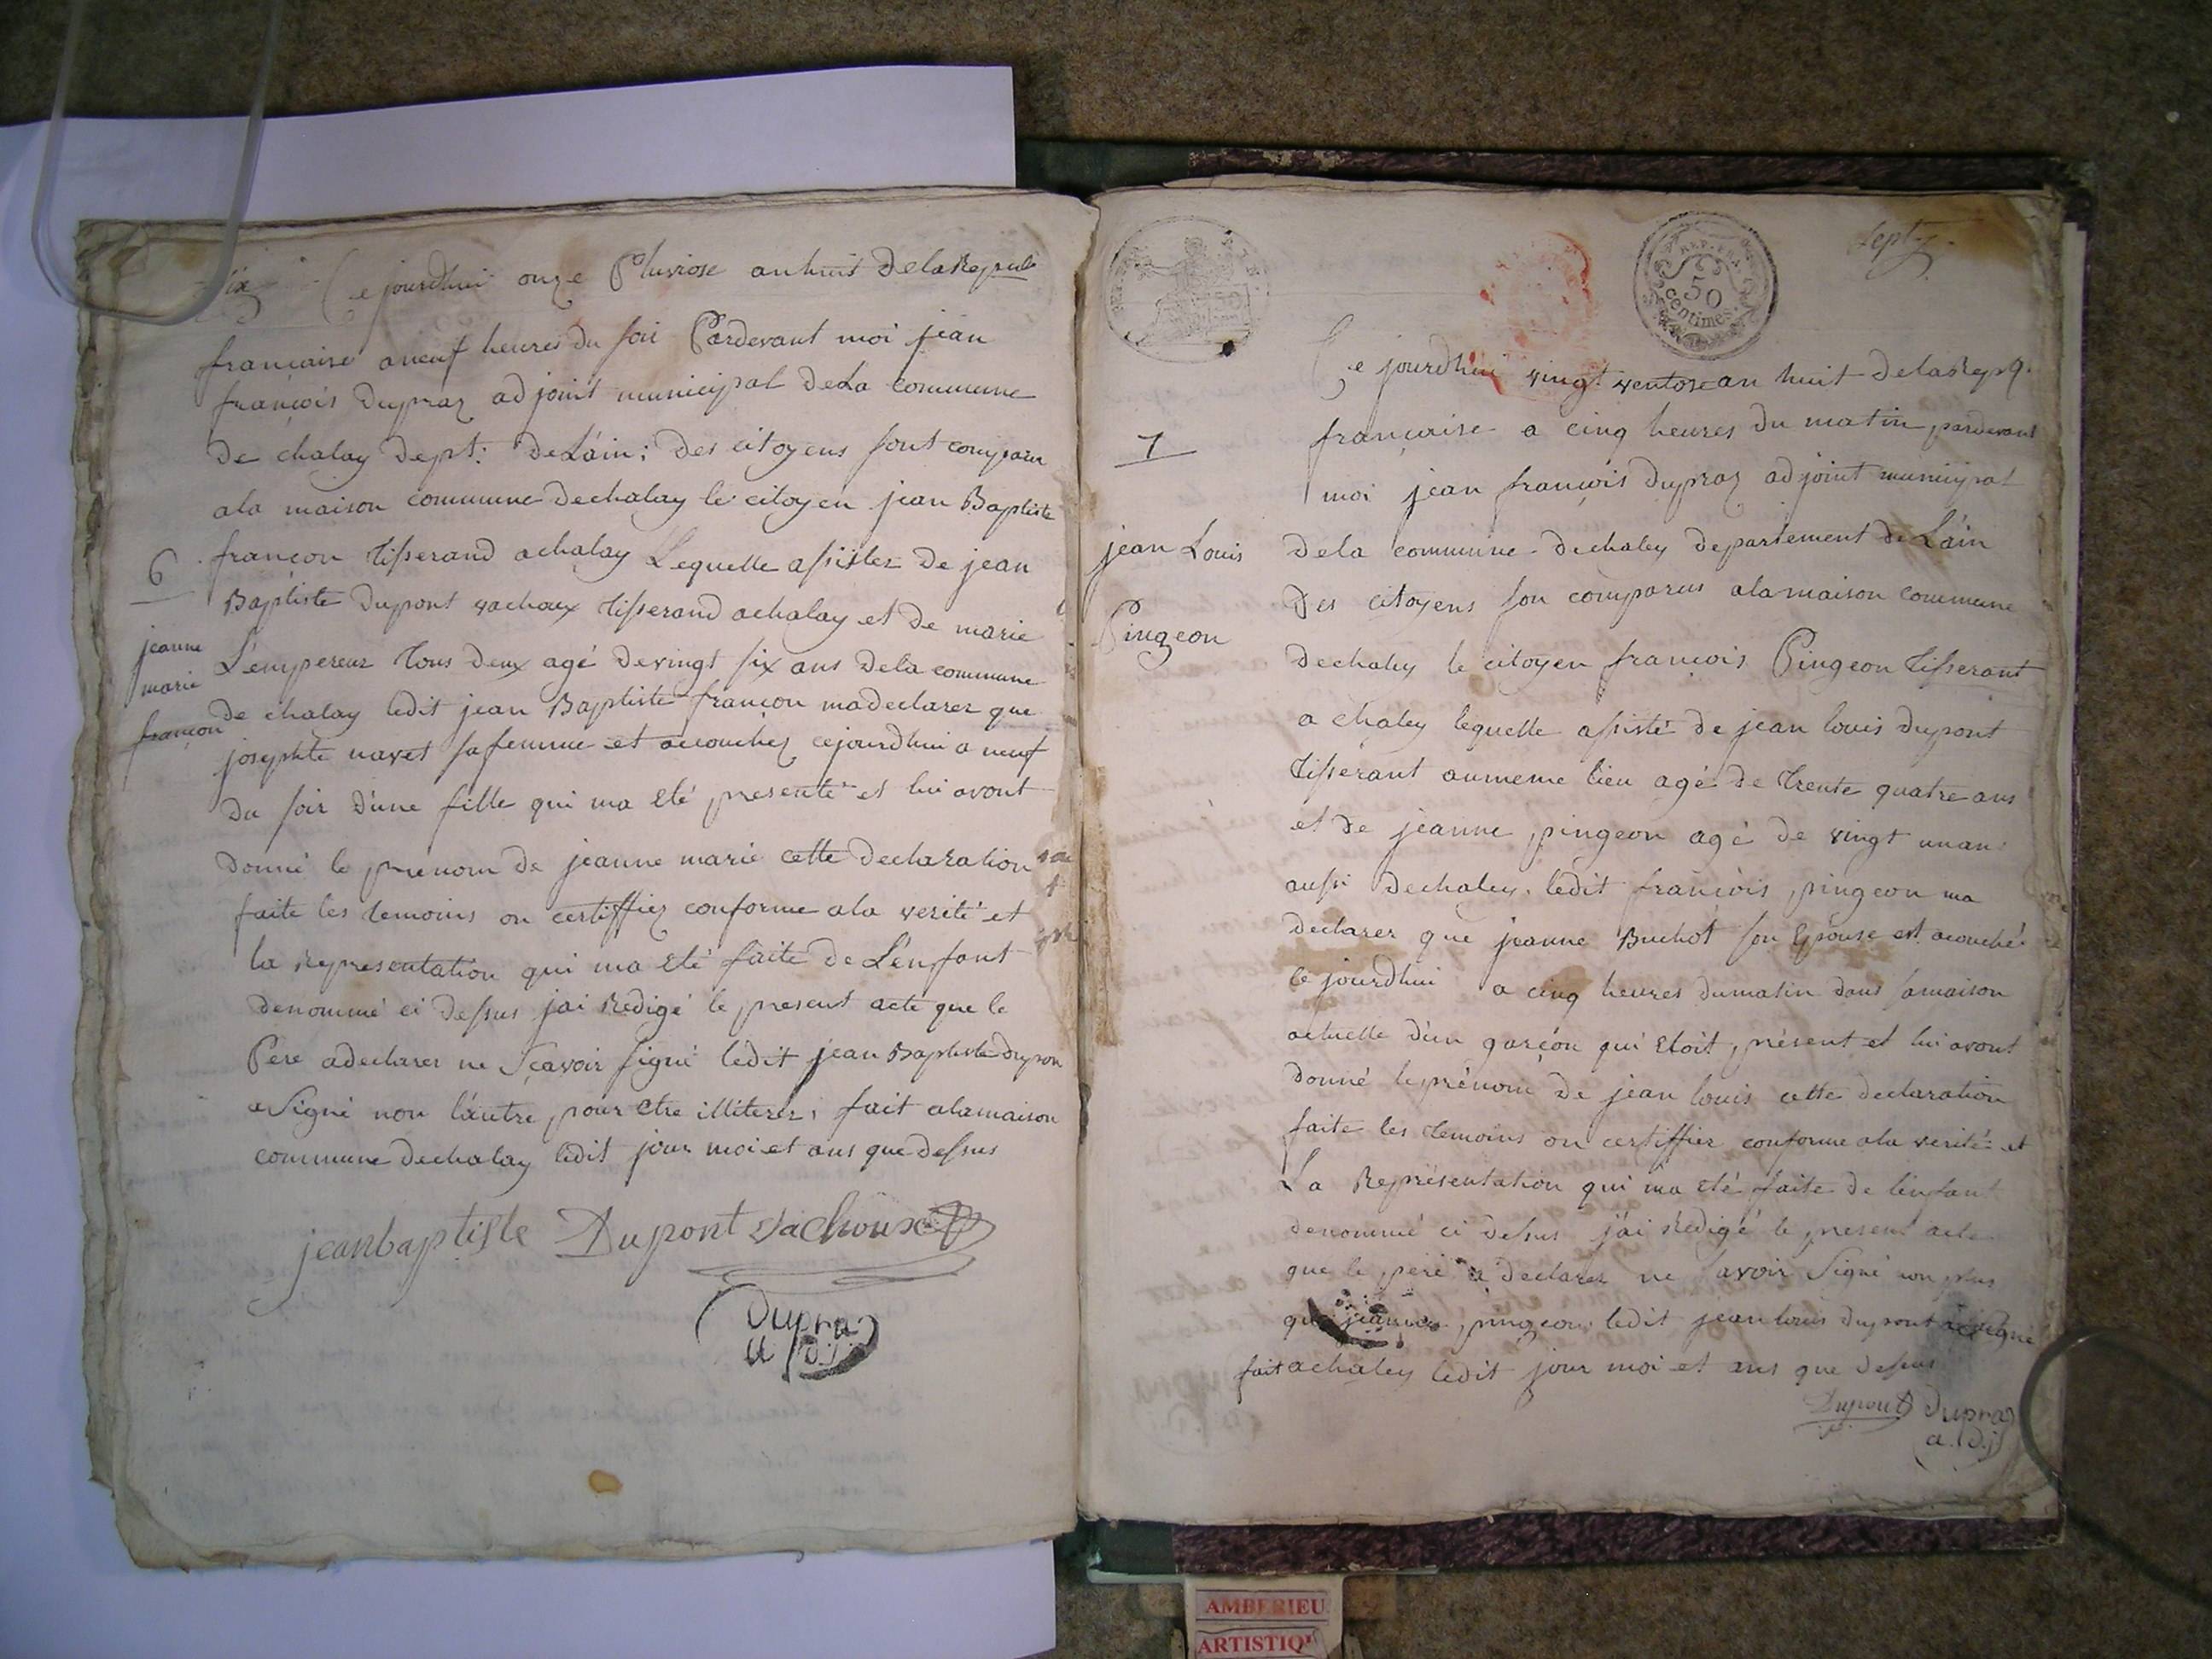 Six
Ce jourdhui onze Pluviose an huit dela Repub
francaise a neuf heures du soir Pardevant moi jean
françois dupraz adjoint municipal de La commune
de chalay dept: de Láin; des citoyens sont comparu
ala maison commune de chalay le citoyen jean Baptiste
françon tisserand a chalay Lequelle assister de jean
Baptiste dupont vachoux tisserand achalay et de marie
L'empereur tous deux agé devingt six ans dela commune
de chalay ledit jean Baptiste françon ma declarer que
josephte navet sa femme et acouchez cejourdhui a neuf
du soir d'une fille qui ma eté presenté et lui avont
donné le prenom de jeanne marie cette declaration
faite les temoins on certiffiez conforme ala verité et
la Representation qui ma eté faite de L'enfant
denommé ci dessus jai Redigé le present acte que le
Pere adeclarer ne Sçavoir signé ledit jean Baptiste dupon
a Signé non láutre pour etre illiterez; fait alamaison
commune dechalay ledit jour moi et ans que dessus
6
jeanne
marie
françon
jeanbaptiste Dupont Vachoux
Dupraz
a dj
REP. FRA.
50
centimes.
sept
7
jean Louis
Pingeon
Ce jourdhui vingt ventose an huit dela Rep
françaire a cinq heures du matin pardevant
moi jean françois dupraz adjoint municipal
dela commune dechaley departement de Láin
des citoyens son comparus alamaison commune
dechaley le citoyen françois Pingeon tisserant
a chaley lequelle assisté de jean louis dupont
tisserant aumeme lieu agé de trente quatre ans
et de jeanne pingeon agé de vingt un an
aussi dechaley. ledit françois pingeon ma
declarer que jeanne Buchot son Epouse est acouché
ce jourdhui a cinq heures dumatin dans samaison
actuelle d'un garçon qui etoit présent et lui avont
donné le prénom de jean louis cette declaration
faite les temoins on certiffier conforme ala verité et
La Représentation qui ma eté faite de lenfant
denommé ci dessus j'ai Redigé le present acte
que le pere a declarer ne savoir Signé non plus
que jeanne pingeon ledit jean louis dupont a signé
fait achaley ledit jour moi et ans que dessus
Dupont dupraz
a. dj
AMBERIEU
ARTISTIQ